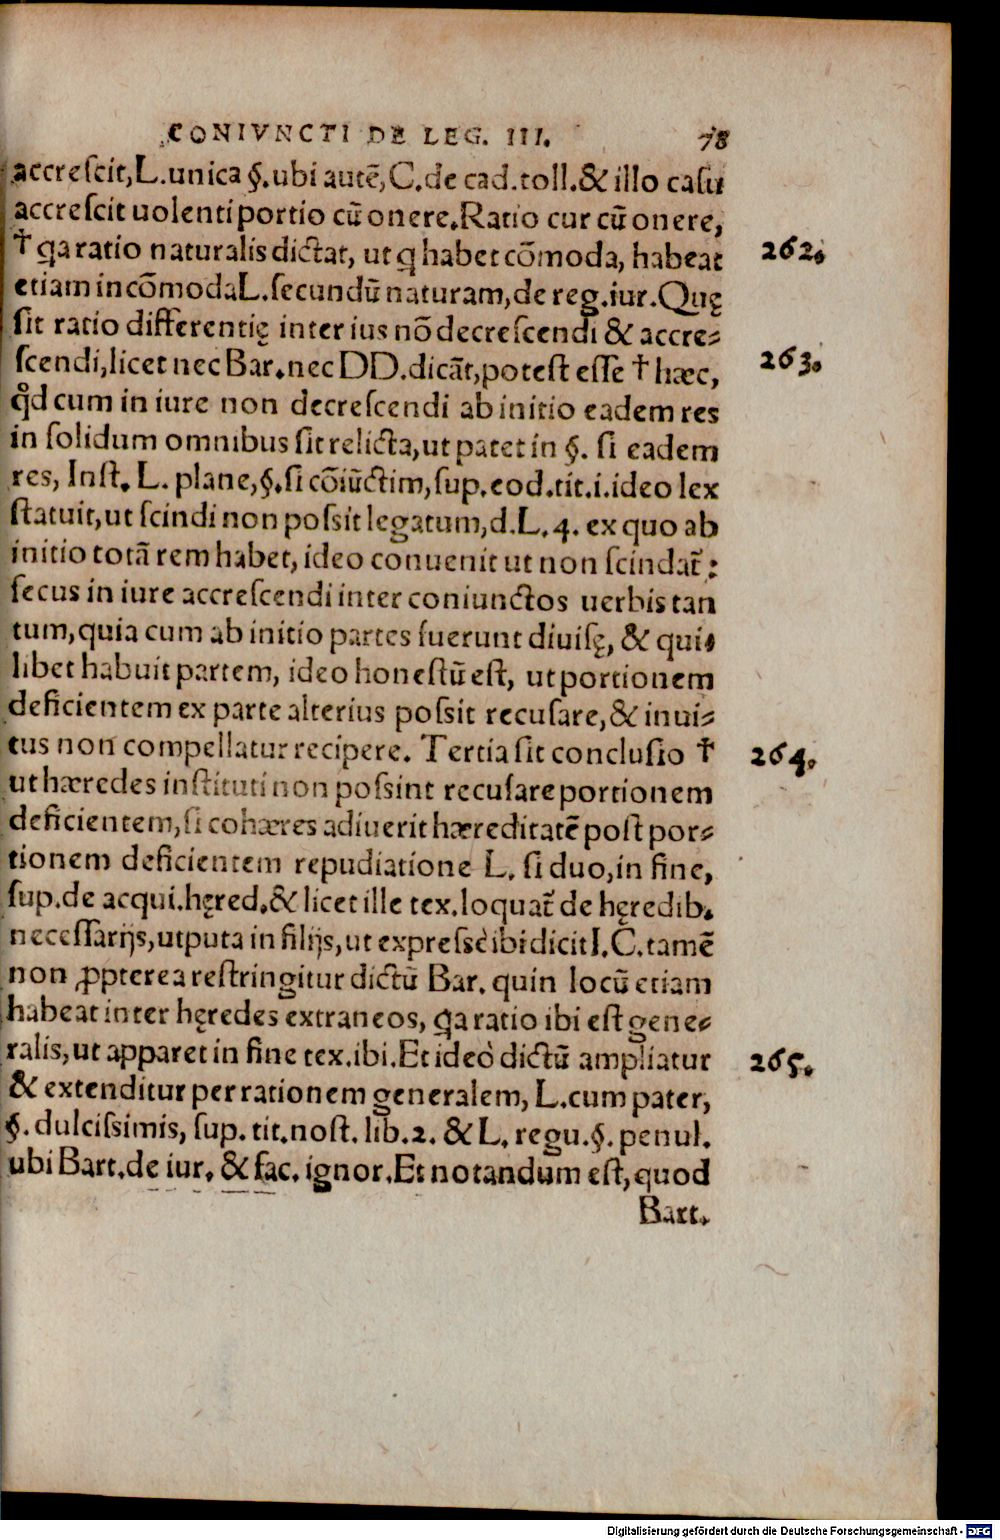 CONIVNCTI DE LEG. III. 78
accreſcit, L. unica §. ubi autē, C. de cad. toll. & illo caſu
accreſcit uolenti portio cū onere. Ratio cur cū onere,
† qa ratio naturalis dictat, ut q habet cōmoda, habeat 262.
etiam incōmoda L. ſecundū naturam, de reg. iur. Quę
ſit ratio differentię inter ius nō decreſcendi & accre-
ſcendi, licet nec Bar. nec DD. dicāt, poteſt eſſe † hæc, 263.
qd cum in iure non decreſcendi ab initio eadem res
in ſolidum omnibus ſit relicta, ut patet in §. ſi eadem
res, Inſt. L. plane, §. ſi cōiūctim, ſup. eod. tit. i. ideo lex
ſtatuit, ut ſcindi non poſsit legatum, d. L. 4. ex quo ab
initio totā rem habet, ideo conuenit ut non ſcindat̃:
ſecus in iure accreſcendi inter coniunctos uerbis tan
tum, quia cum ab initio partes fuerunt diuiſę, & qui-
libet habuit partem, ideo honeſtū eſt, ut portionem
deficientem ex parte alterius poſsit recuſare, & inui-
tus non compellatur recipere. Tertia ſit concluſio † 264.
ut hæredes inſtituti non poſsint recuſare portionem
deficientem, ſi cohæres adiuerit hæreditatē poſt por-
tionem deficientem repudiatione L. ſi duo, in fine,
ſup. de acqui. hęred. & licet ille tex. loquat̃ de hęredib.
neceſſarijs, utputa in filijs, ut expreſsè ibi dicit I. C. tamē
non ꝓpterea reſtringitur dictū Bar. quin locū etiam
habeat inter hęredes extraneos, qa ratio ibi eſt gene-
ralis, ut apparet in fine tex. ibi. Et ideò dictū ampliatur 265.
& extenditur per rationem generalem, L. cum pater,
§. dulciſsimis, ſup. tit. noſt. lib. 2. & L. regu. §. penul.
ubi Bart. de iur. & fac. ignor. Et notandum eſt, quod
Bart.
Digitalisierung gefördert durch die Deutsche Forschungsgemeinschaft - DFG